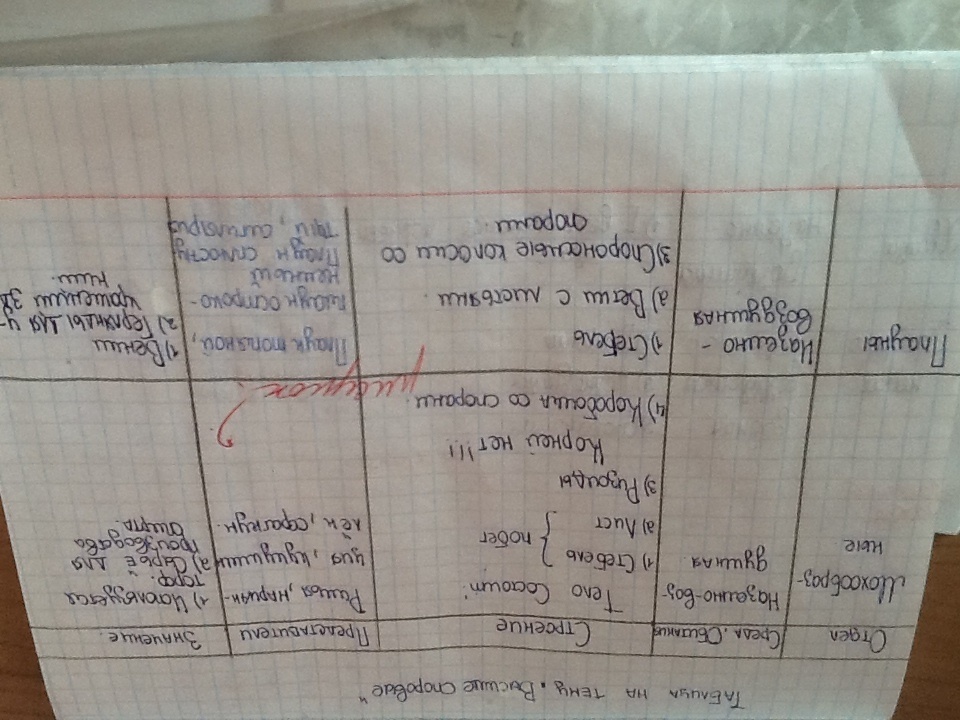 Таблица на тему „Высшие споровые"
Отдел
Среда. Обитания
Строение
Представители
Значение.
Мохообраз-
ные
Наземно-воз-
душная
Тело Состоит:
1) Стебель
2) Лист
побег
3) Ризоиды
Корней нет!!!
4) Коробочка со спорами.
маршан-
ция, кукушкин
лён, сфагнум.
1) Используется
торф.
2) Сырьё для
производства
спирта.
?
рисунок
Плауны
Наземно -
воздушная
1) Стебель
2) Ветви с листьями.
3) Спороносные колоски со
спорами.
Плаун
плаун
Плаун
1) Венки
2) Гирлянды для у-
крошения